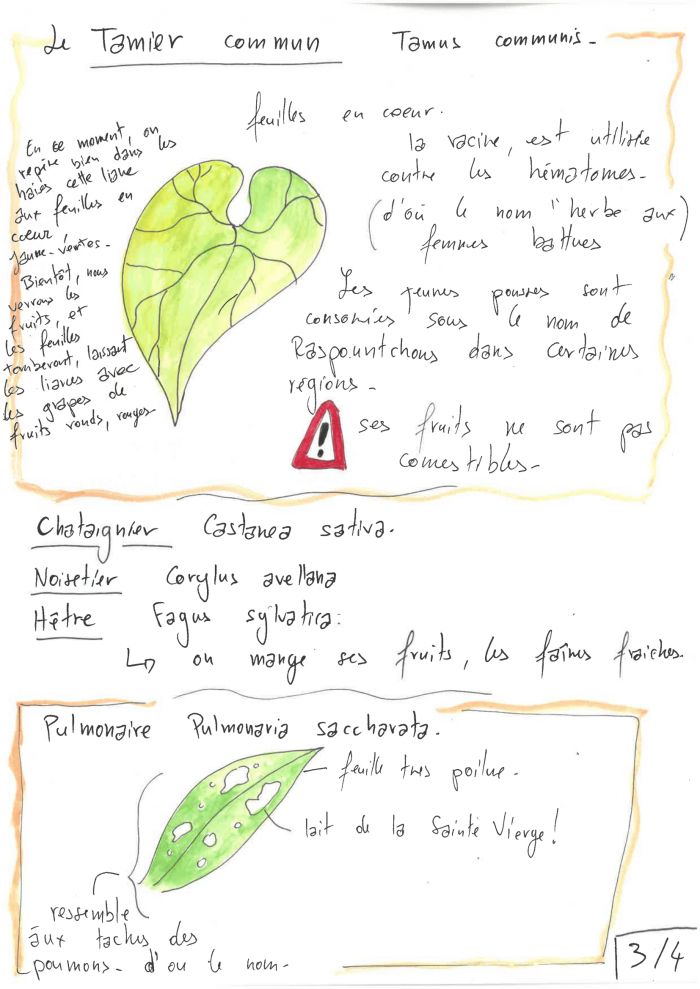 Le Tamier commun Tamus communis-
feuilles en coeur.
En ce moment, on
repère bien dans les
haies cette liane
aux feuilles en
coeur
jaune-vertes-
Bientôt, nous
verrons les
fruits, et
les feuilles
tomberont, laissant
les lianes avec
les grapes de
fruits ronds, rouges
la racine, est utilisée
contre les hématomes-
(d'où le nom "herbe aux)
femmes battues "
Les jeunes pousses sont
consomées sous le nom de
Raspountchous dans certaines
régions-
! ses fruits ne sont pas
comestibles-
Chataignier Castanea sativa.
Noisetier Corylus avellana
Hêtre Fagus sylvatica:
↳ on mange ses fruits, les faînes fraiches.
Pulmonaire Pulmonaria saccharata.
feuille très poilue-
lait de la Sainte Vierge!
ressemble
aux taches des
poumons- d'ou le nom-
3/4